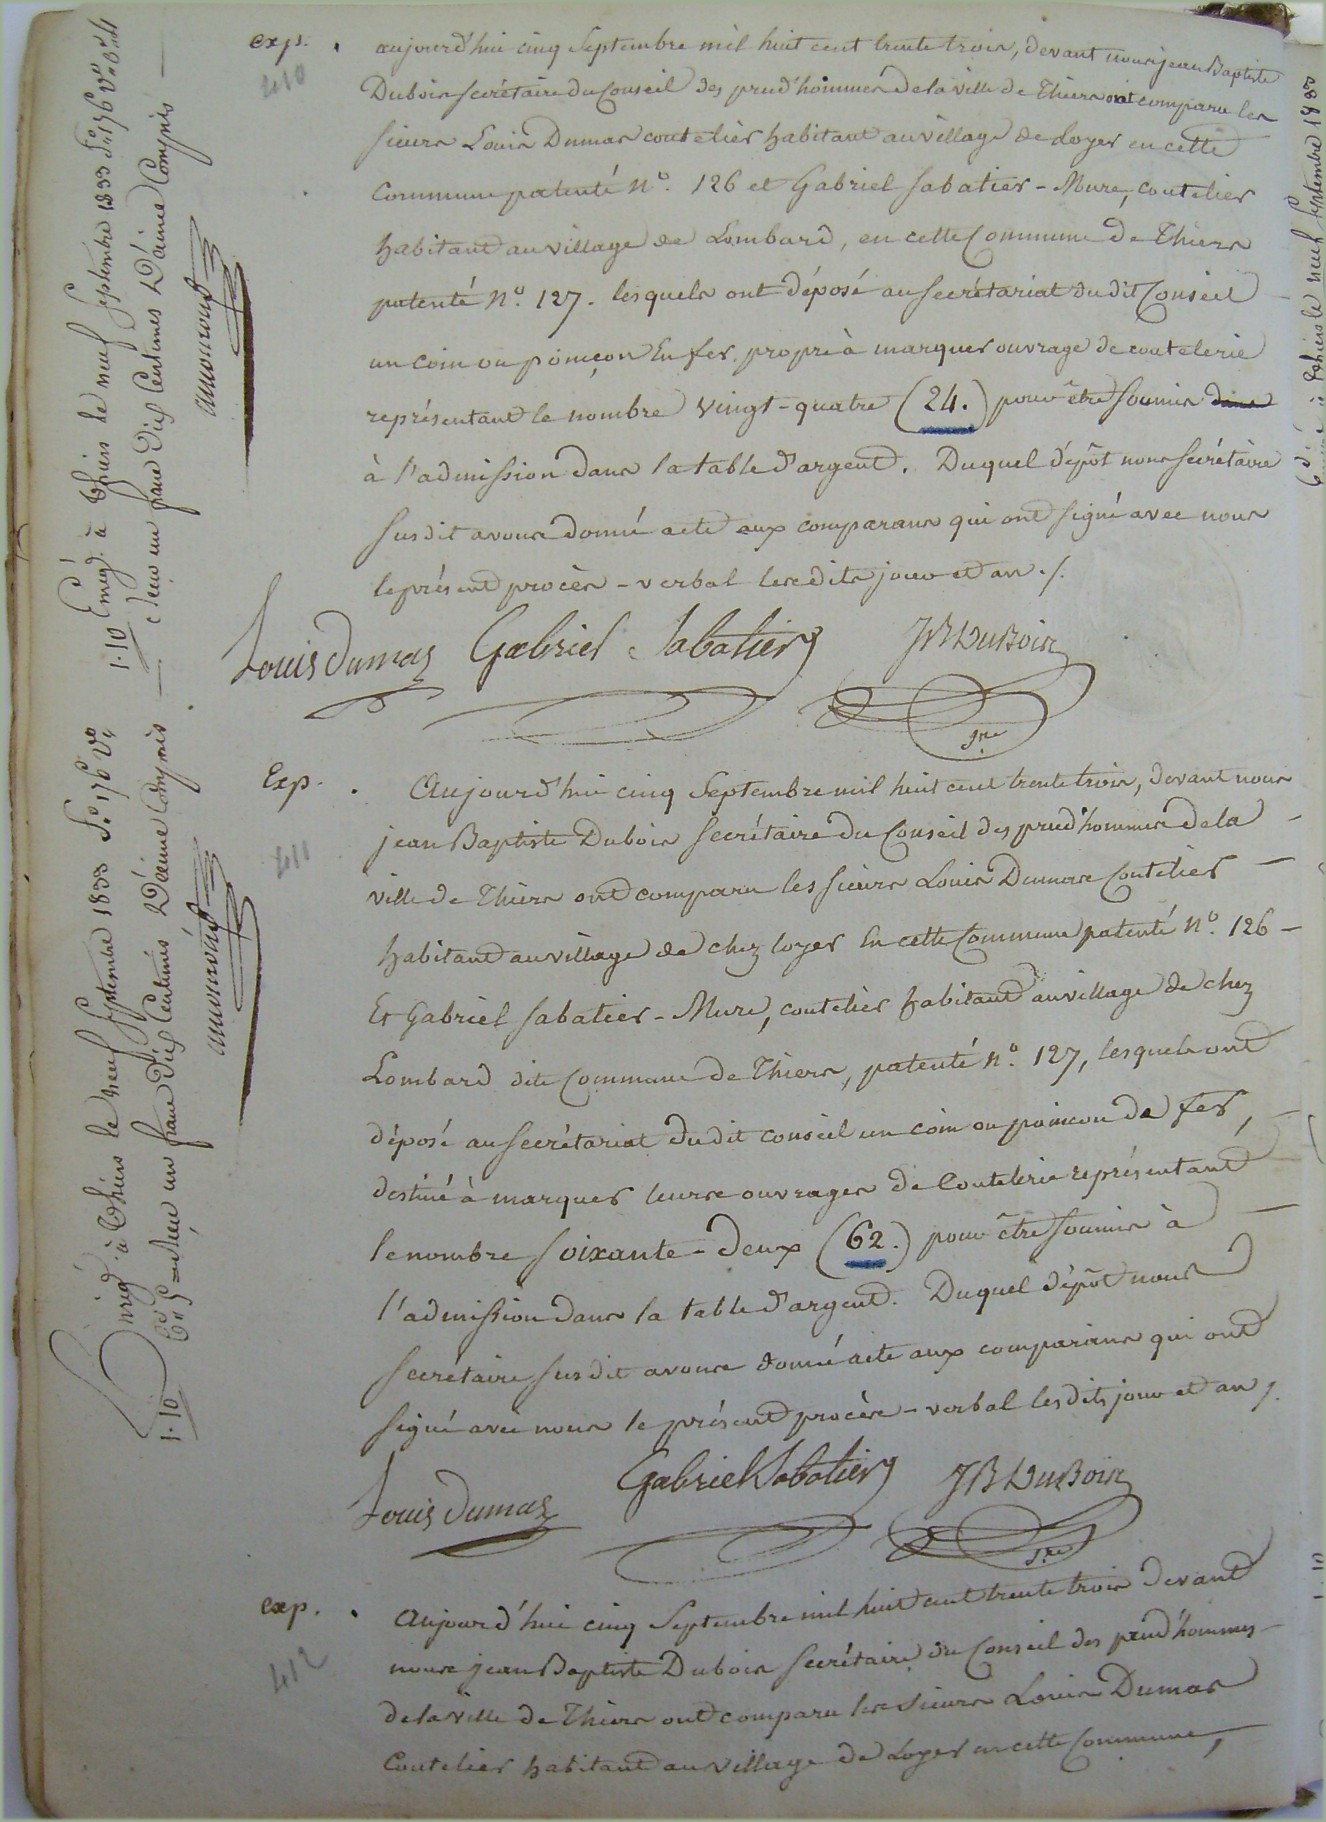 exp.
410
aujourd'hui cinq Septembre mil huit cent trente trois, devant nous jean Baptiste
Dubois secrétaire du Conseil des prud'hommes de la ville de Thiers ont comparu les
sieurs Louis Dumas coutelier habitant au village de Loyer en cette
Commune patenté N.º 126 et Gabriel Sabatier - Mure, coutelier
habitant au village de Lombard, en cette Commune de Thiers
patenté N.º 127. lesquels ont déposé au secrétariat dudit Conseil
un coin ou poinçon En fer propre à marquer ouvrage de coutelerie
représentant le nombre vingt-quatre (24.) pour être soumis dans
à l'admission dans la table d'argent. Duquel dépôt nous secrétaire
susdit avons donné acte aux comparans qui ont signé avec nous
le présent procès-verbal lesdits jour et an ./.
Louis Dumas Gabriel Sabatier JB Dubois
Sre
Exp.
411
Aujourd'hui cinq Septembre mil huit cent trente trois, devant nous
jean Baptiste Dubois secrétaire du Conseil des prud'hommes de la
ville de Thiers ont comparu les sieurs Louis Dumas Coutelier
habitant au village de chez loyer En cette Commune patenté N.º 126
Et Gabriel Sabatier - Mure, coutelier habitant au village de chez
Lombard dite Commune de Thiers, patenté N.º 127, lesquels ont
déposé au secrétariat dudit conseil un coin ou poincon de fer,
destiné à marquer leurs ouvrages de Coutelerie représentant
le nombre soixante-deux (62.) pour être soumis à
l'admission dans la table d'argent. Duquel dépôt nous
secrétaire susdit avons donné acte aux comparans qui ont
signé avec nous le présent procès-verbal lesdits jour et an ./.
Louis Dumas Gabriel Sabatier JB Dubois
Sre
exp.
412
Aujourd'hui cinq Septembre mil huit cent trente trois devant
nous jean Baptiste Dubois secrétaire du Conseil des prud'hommes
de la ville de Thiers ont comparu les sieurs Louis Dumas
Coutelier habitant au village de Loyer en cette Commune,
Enreg. à Thiers le neuf Septembre 1833 f.º 176 V.º
reçu un franc dix Centimes Décime Compris
1.10
Enreg. à Thiers le neuf Septembre 1833 f.º 176 Vº
reçu un franc dix Centimes Décime Compris
1.10
à Thiers le neuf Septembre 1833